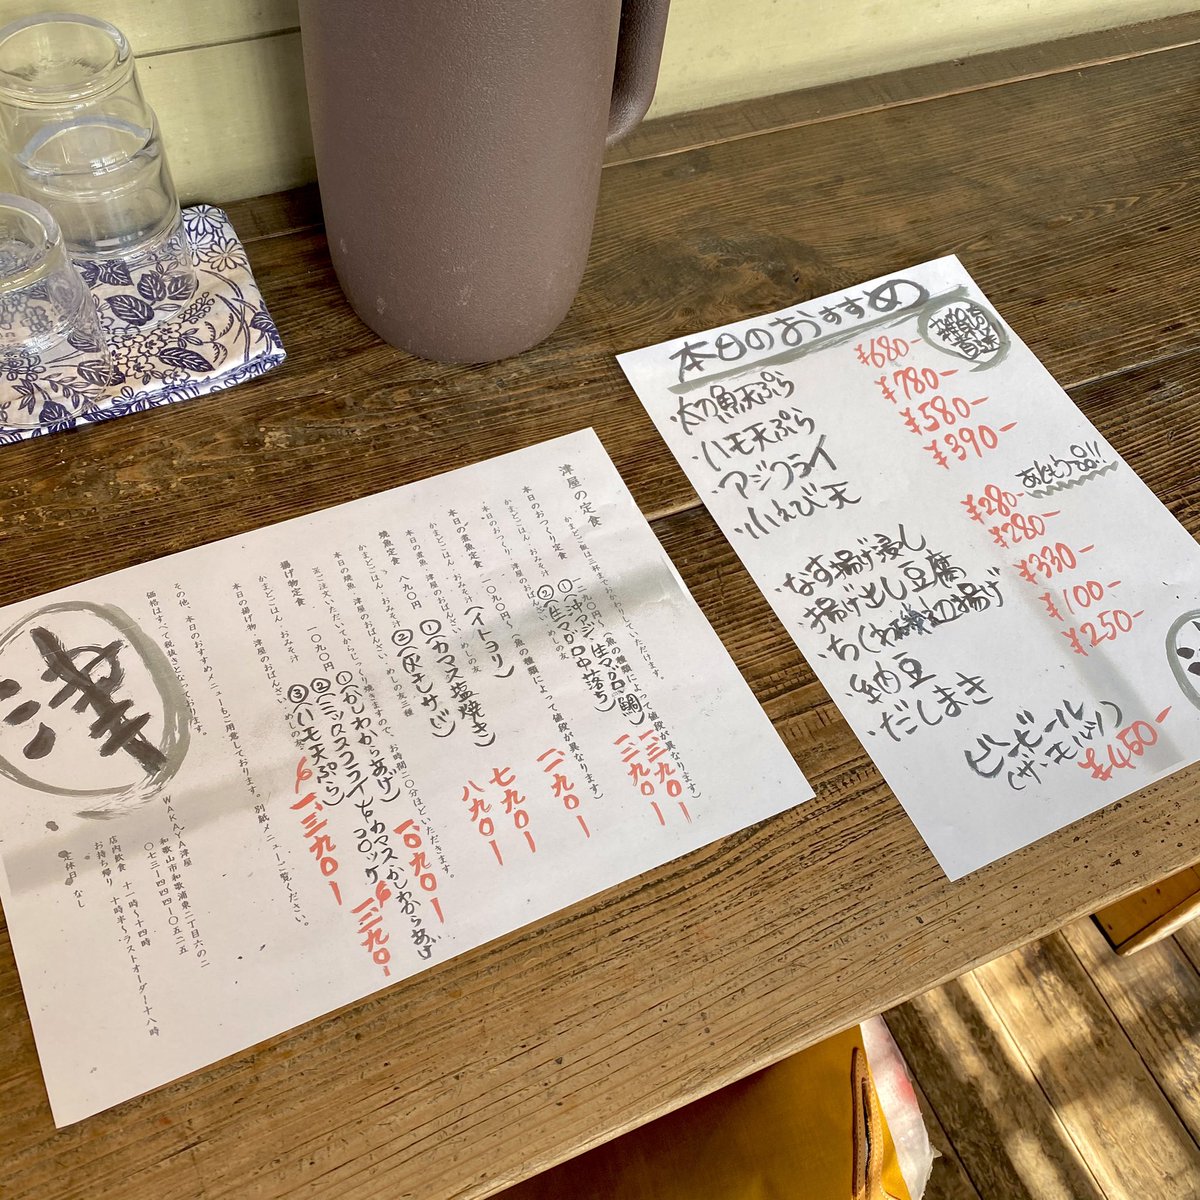 津屋の定食
かまどご飯は三杯までおかわりしていただけます。
本日のおつくり定食 一二九〇円(魚の種類によって値段が異なります)
かまどごはん、おみそ汁 ①(沖アジ・生マグロ
本日のおつくり、津屋のおばんざい、めしの友 ②(生マグロ中落ち)
一、三九〇ー
一、二九〇ー
本日の煮魚定食 一〇九〇円(魚の種類によって値段が異なります)
かまどごはん、おみそ汁 (イトヨリ)
本日の煮魚、津屋のおばんざい、めしの友
一、一九〇ー
焼魚定食 八九〇円 ①(カマス塩焼き)
かまどごはん、おみそ汁 ②(灰干しサバ)
本日の焼魚、津屋のおばんざい、めしの友二種
七九〇ー
八九〇ー
※ご注文いただいてからじっくり焼きますので、お時間二〇分ほどいただきます。
揚げ物定食 一〇九〇円
かまどごはん、おみそ汁 ②(ミックスフライ
本日の揚げ物、津屋のおばんざい、めしの友 ③(ハモ天ぷら)
一、〇九〇ー
一、二九〇ー
一、三九〇ー
その他、本日のおすすめメニューもご用意しております。別紙メニューご覧ください。
価格はすべて税抜きとなっております。
津
WAKAYA津屋
和歌山市和歌浦東二丁目六の二
〇七三ー四四四ー〇五二五
店内飲食 十一時〜十四時
お持ち帰り 十時半〜ラストオーダー十八時
定休日 なし
本日のおすすめ
太刀魚天ぷら ¥680-
ハモ天ぷら ¥780-
アジフライ ¥580-
小えび天 ¥390-
あともう一品!!
なす揚げ浸し ¥280-
揚げ出し豆腐 ¥280-
ちくわ磯辺揚げ ¥330-
納豆 ¥100-
だしまき ¥250-
ビール
(ザ・モルツ) ¥450-